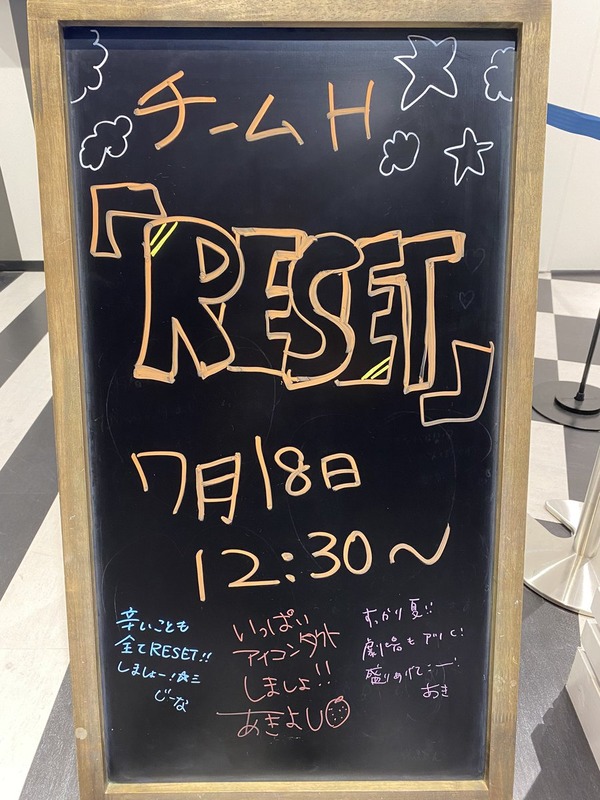 チームH
『RESET』
7月18日
12:30〜
辛いことも
全てRESET!!
しましょー!☆三
じーな
いっぱい
アイコンタクト
しましょ!!
あきよし
すっかり夏!!
劇場も アツく!
盛りあげて
あき